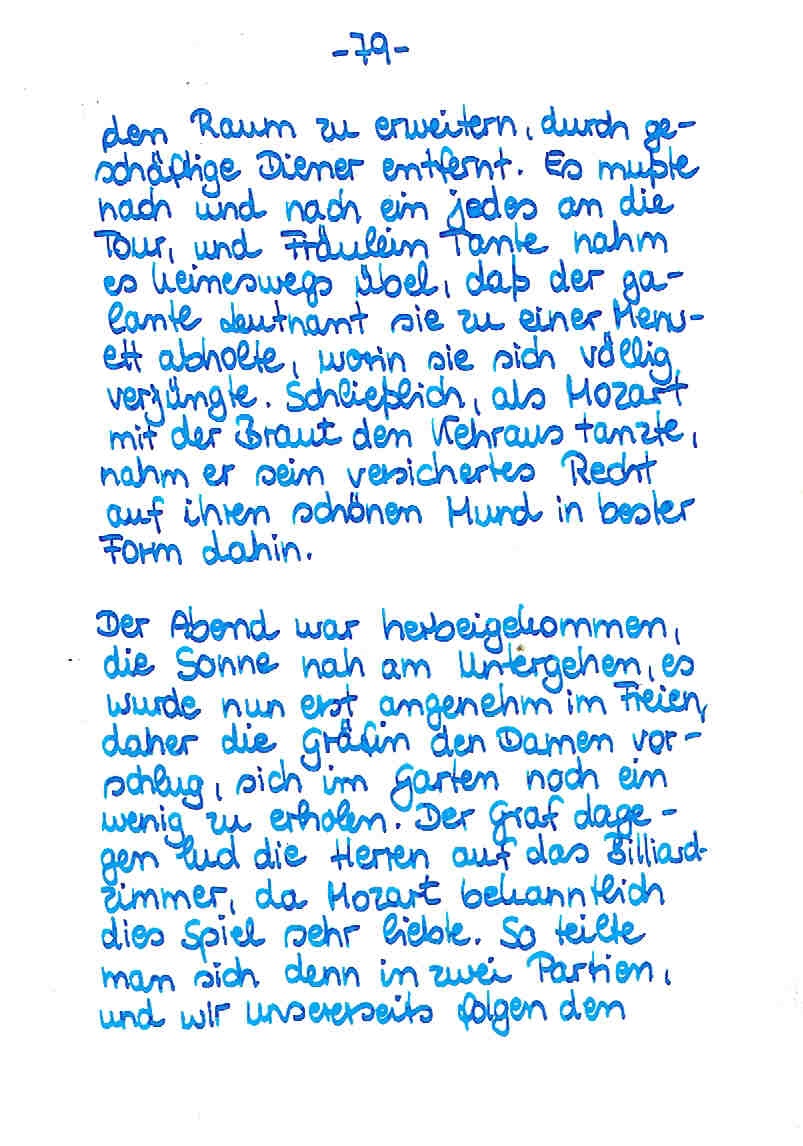 -79-
den Raum zu erweitern, durch ge-
schäftige Diener entfernt. Es mußte
nach und nach ein jedes an die
Tour, und Fräulein Tante nahm
es keineswegs übel, daß der ga-
lante Leutnamt sie zu einer Menu-
ett abholte, worin sie sich völlig
verjüngte. Schließlich, als Mozart
mit der Braut den Kehraus tanzte,
nahm er sein versichertes Recht
auf ihren schönen Mund in bester
Form dahin.
Der Abend war herbeigekommen,
die Sonne nah am Untergehen, es
wurde nun erst angenehm im Freien,
daher die Gräfin den Damen vor-
schlug, sich im Garten noch ein
wenig zu erholen. Der Graf dage-
gen lud die Herren auf das Billiard-
zimmer, da Mozart bekanntlich
dies Spiel sehr liebte. So teilte
man sich denn in zwei Partien,
und wir unsererseits folgen den